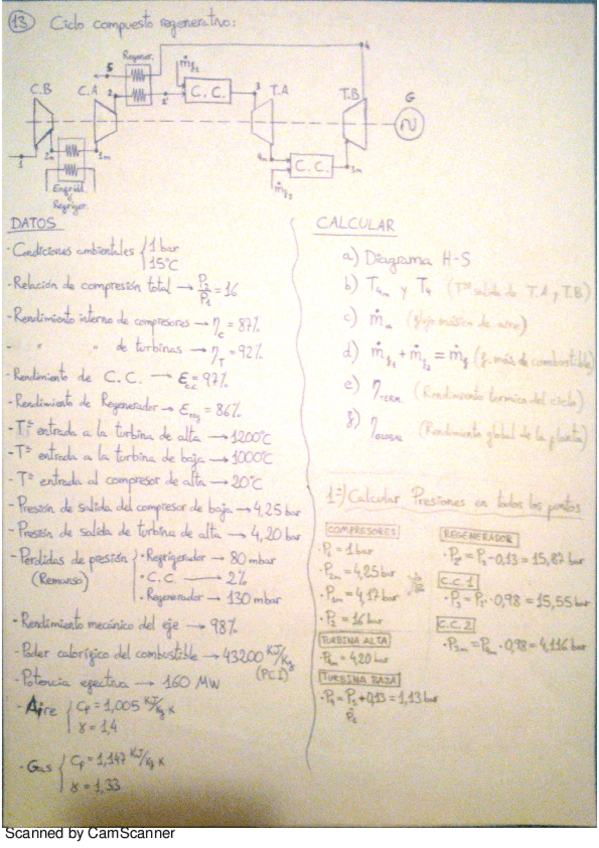 13 Ciclo compuesto regenerativo:
Regener.
ṁf1
C.B
C.A
C.C.
T.A
T.B
G
1
2m
1m
2
2'
5
3
4m
3m
4
C.C.
ṁf2
Refriger.
DATOS
- Condiciones ambientales { 1 bar
15°C
- Relación de compresión total → P2/P1 = 16
- Rendimiento interno de compresores → ηc = 87%
" " de turbinas → ηT = 92%
- Rendimiento de C.C. → εc.c = 97%
- Rendimiento de Regenerador → εreg = 86%
- Tª entrada a la turbina de alta → 1200°C
- Tª entrada a la turbina de baja → 1000°C
- Tª entrada al compresor de alta → 20°C
- Presión de salida del compresor de baja → 4,25 bar
- Presión de salida de turbina de alta → 4,20 bar
- Perdidas de presión { • Refrigerador → 80 mbar
(Remanso) • C.C. → 2%
• Regenerador → 130 mbar
- Rendimiento mecánico del eje → 98%
- Poder calorífico del combustible → 43200 KJ/Kg
(PCI)
- Potencia efectiva → 160 MW
- Aire { Cp = 1,005 KJ/Kg K
γ = 1,4
- Gas { Cp = 1,147 KJ/Kg K
γ = 1,33
CALCULAR
a) Diagrama H-S
b) T4m y T4 (Tªs salida de T.A y T.B)
c) ṁa (flujo másico de aire)
d) ṁf1 + ṁf2 = ṁf (f. más. de combustible)
e) ηTERM. (Rendimiento termico del ciclo)
f) ηGLOBAL (Rendimiento global de la planta)
1º) Calcular Presiones en todos los puntos
COMPRESORES
• P1 = 1 bar
• P2m = 4,25 bar
• P1m = 4,17 bar
• P2 = 16 bar
TURBINA ALTA
• P4m = 4,20 bar
TURBINA BAJA
• P4 = P5 + 0,13 = 1,13 bar
REGENERADOR
• P2' = P2 - 0,13 = 15,87 bar
C.C. 1
• P3 = P2' · 0,98 = 15,55 bar
C.C. 2
• P3m = P4m · 0,98 = 4,116 bar
Scanned by CamScanner